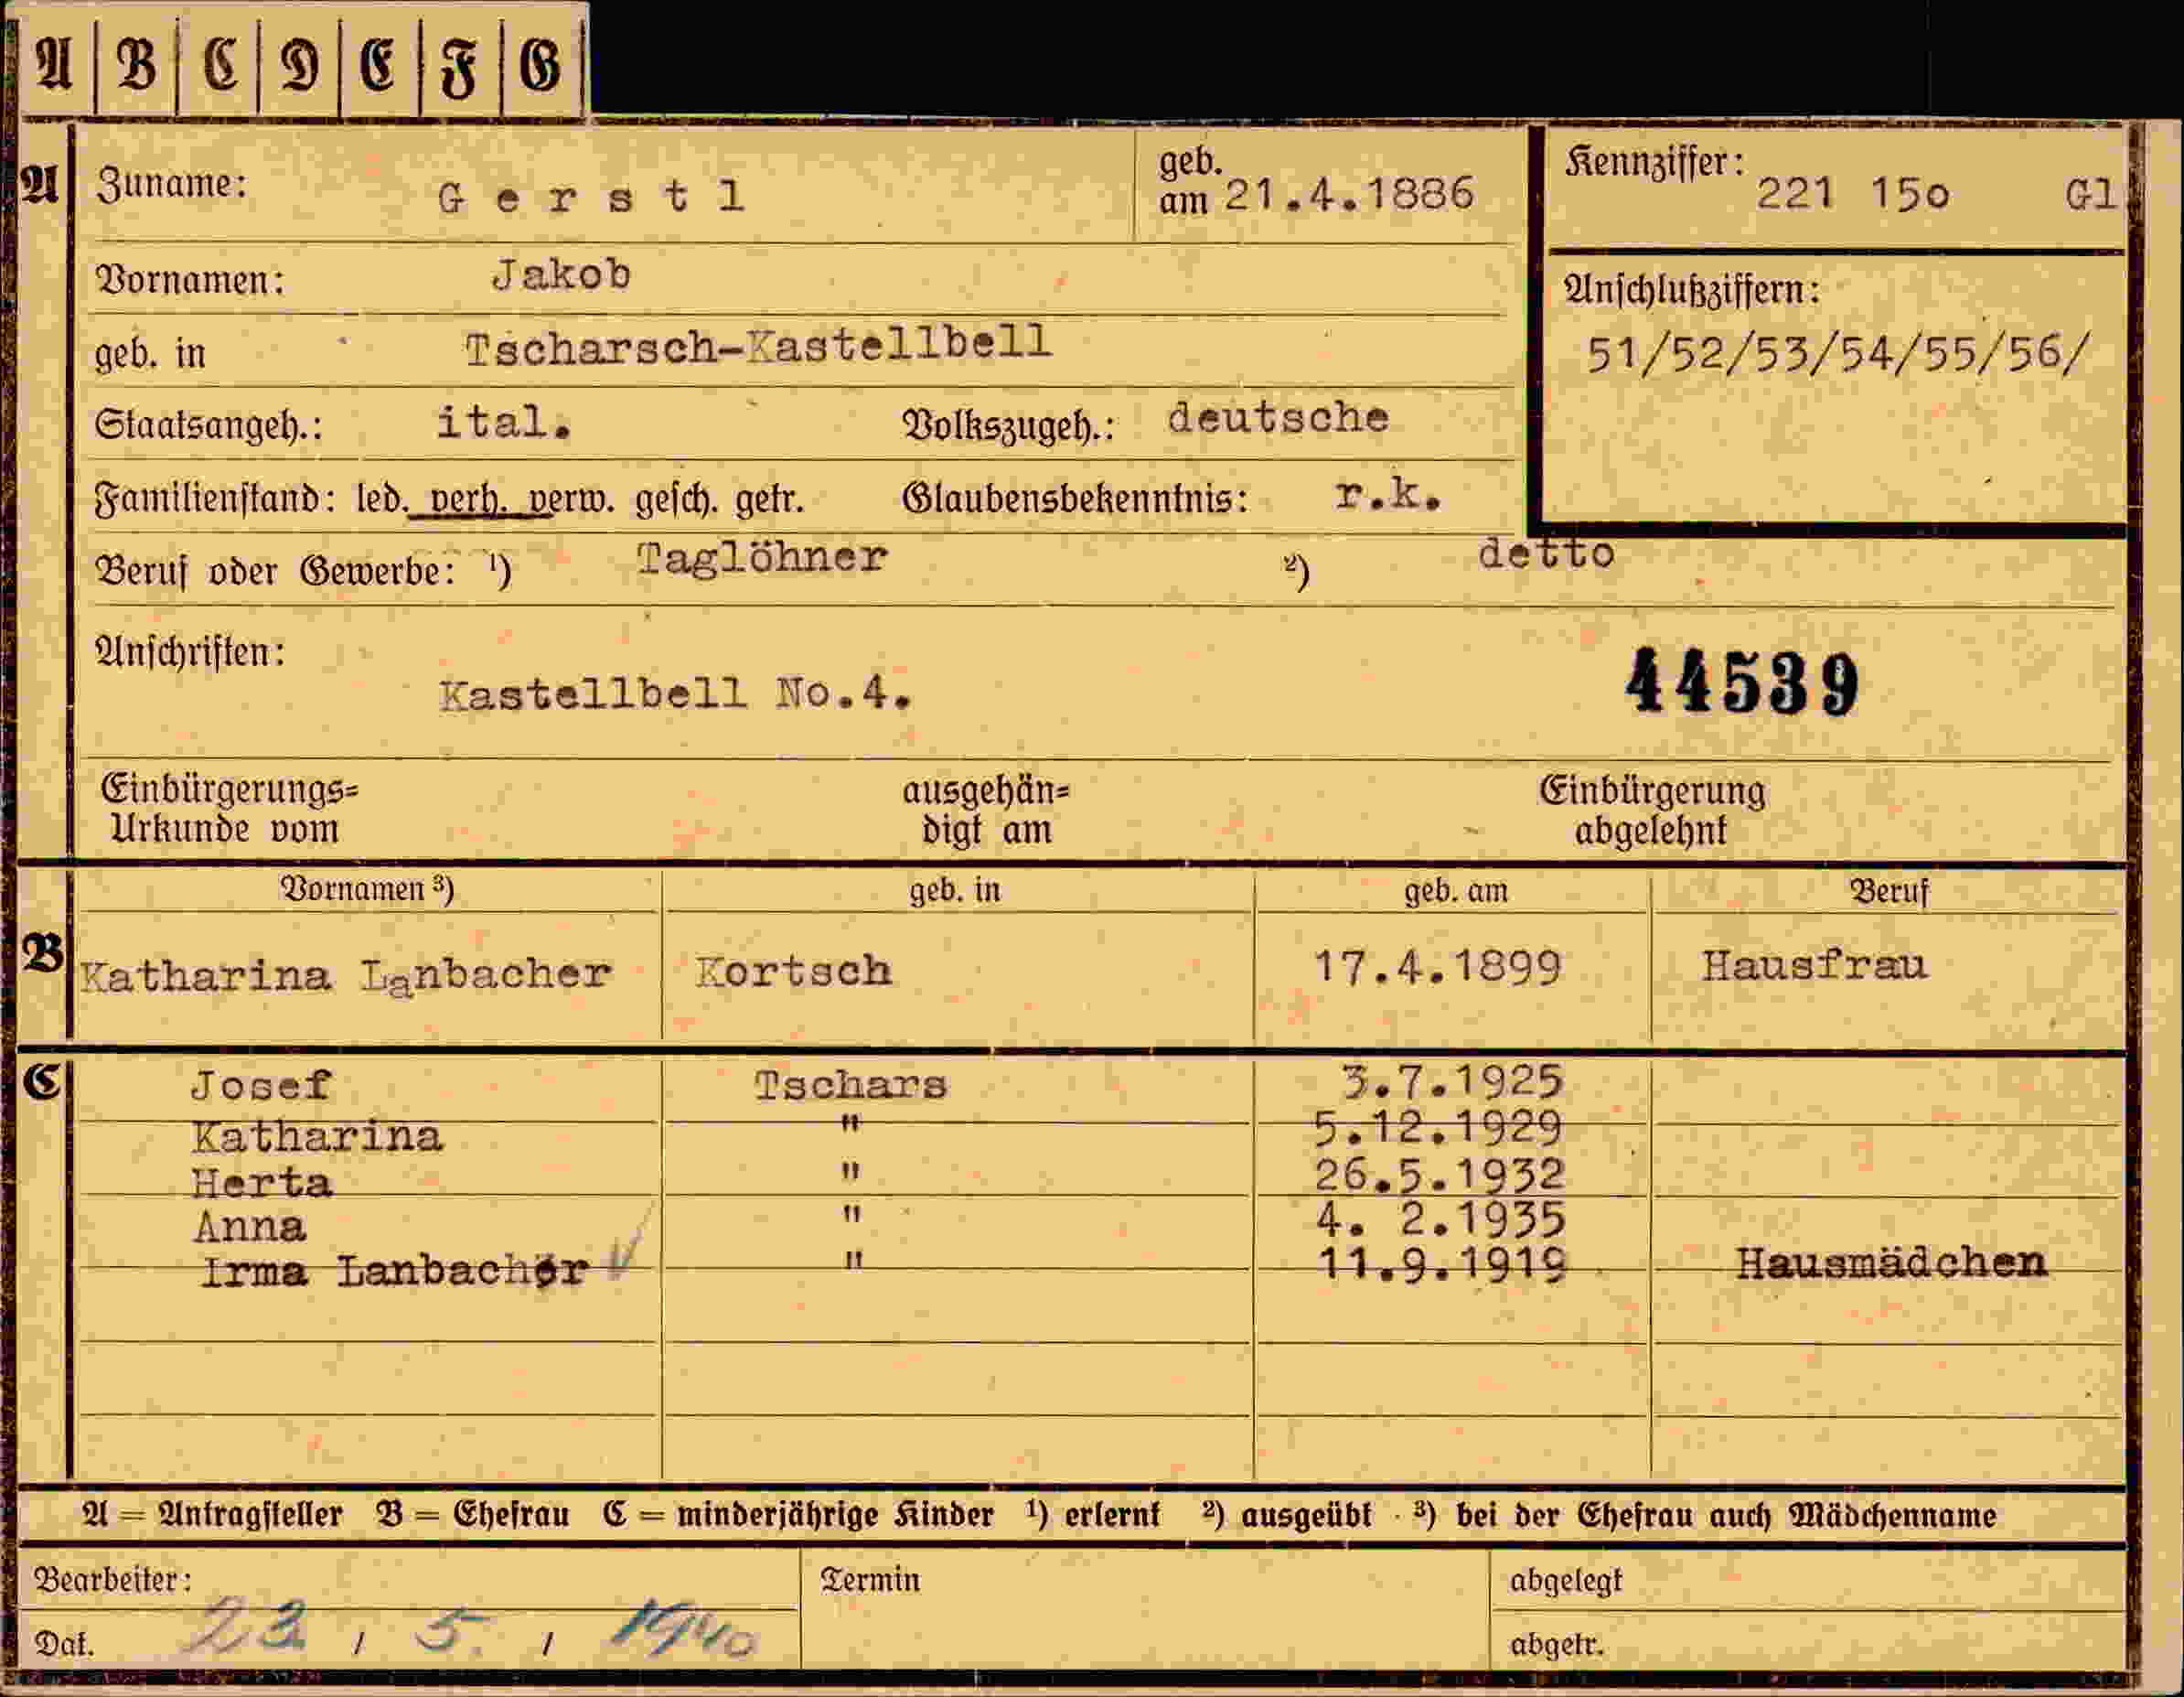 A B C D E F G
A Zuname: Gerstl geb. am 21.4.1886 Kennziffer: 221 15o Gl
Vornamen: Jakob
Anschlußziffern:
geb. in Tscharsch-Kastellbell 51/52/53/54/55/56/
Staatsangeh.: ital. Volkszugeh.: deutsche
Familienstand: led. verh. verw. gesch. getr. Glaubensbekenntnis: r.k.
Beruf oder Gewerbe: ¹) Taglöhner ²) detto
Anschriften:
Kastellbell No.4. 44539
Einbürgerungs= ausgehän= Einbürgerung
Urkunde vom digt am abgelehnt
Vornamen ³) geb. in geb. am Beruf
B Katharina Lanbacher Kortsch 17.4.1899 Hausfrau
C Josef Tschars 3.7.1925
Katharina " 5.12.1929
Herta " 26.5.1932
Anna " 4. 2.1935
Irma Lanbacher " 11.9.1919 Hausmädchen
A = Antragsteller B = Ehefrau C = minderjährige Kinder ¹) erlernt ²) ausgeübt ³) bei der Ehefrau auch Mädchenname
Bearbeiter: Termin abgelegt
Dat. 23 / 5. / 1940 abgetr.